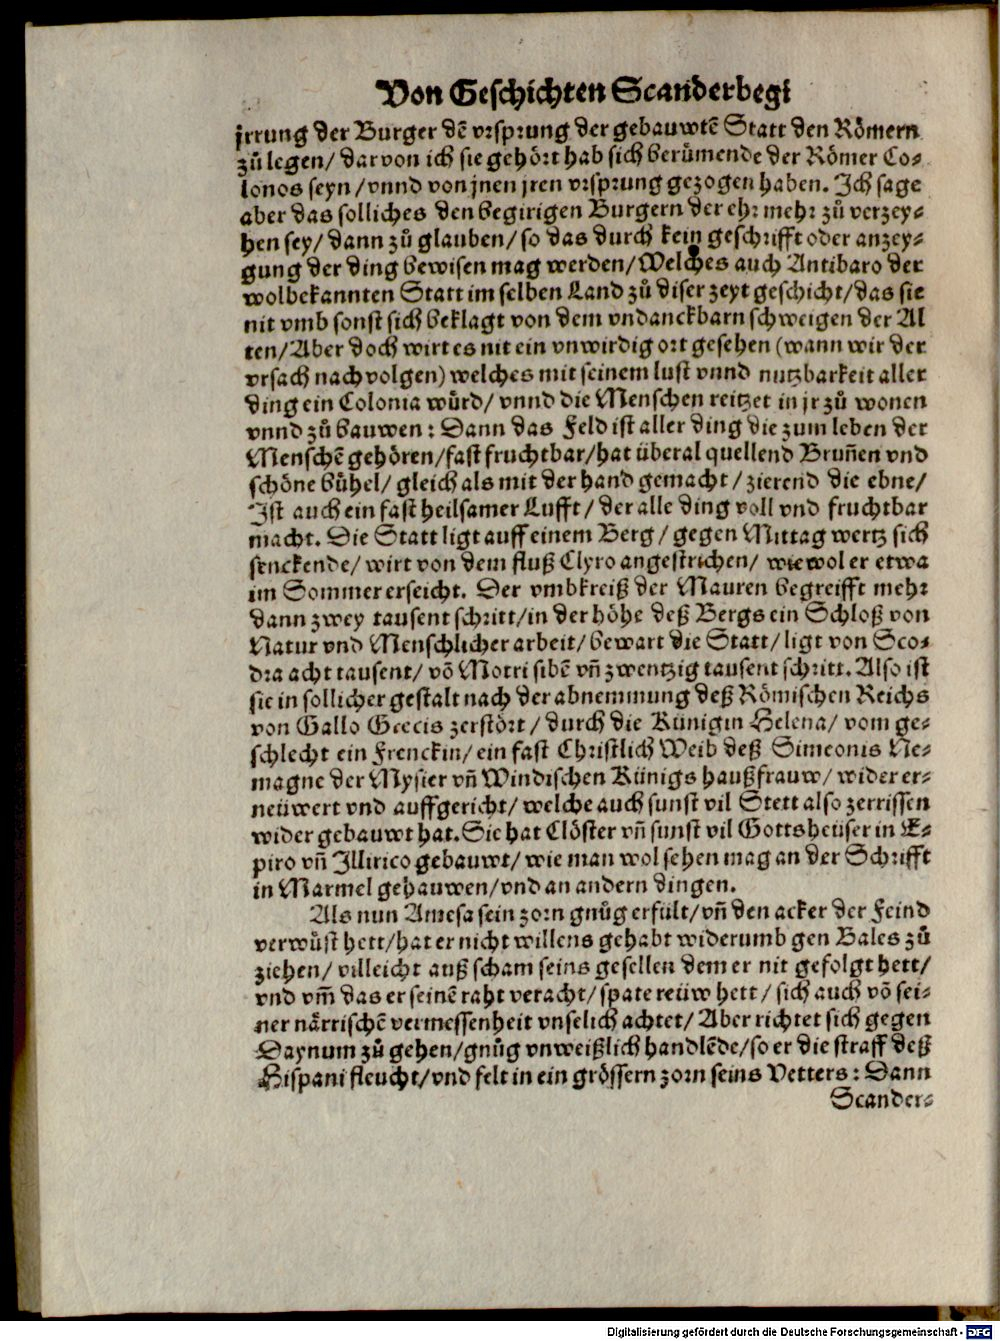 Von Geschichten Scanderbegi
jrrung der Burger dẽ vrsprung der gebauwtẽ Statt den Römern
zů legen/ darvon ich sie gehört hab sich berümende der Römer Co⸗
lonos seyn/ vnnd von jnen jren vrsprung gezogen haben. Ich sage
aber das solliches den begirigen Burgern der ehr mehr zů verzey⸗
hen sey/ dann zů glauben/ so das durch kein geschrifft oder anzey⸗
gung der ding bewisen mag werden/ Welches auch Antibaro der
wolbekannten Statt im selben Land zů diser zeyt geschicht/ das sie
nit vmb sonst sich beklagt von dem vndanckbarn schweigen der Al
ten/ Aber doch wirt es nit ein vnwirdig ort gesehen (wann wir der
vrsach nachvolgen) welches mit seinem lust vnnd nutzbarkeit aller
ding ein Colonia würd/ vnnd die Menschen reitzet in jr zů wonen
vnnd zů bauwen: Dann das Feld ist aller ding die zum leben der
Menschẽ gehören/ fast fruchtbar/ hat überal quellend Bruñen vnd
schöne bühel/ gleich als mit der hand gemacht/ zierend die ebne/
Ist auch ein fast heilsamer Lufft/ der alle ding voll vnd fruchtbar
macht. Die Statt ligt auff einem Berg/ gegen Mittag wertz sich
senckende/ wirt von dem fluß Clyro angestrichen/ wiewol er etwa
im Sommer erseicht. Der vmbkreiß der Mauren begreifft mehr
dann zwey tausent schritt/ in der höhe deß Bergs ein Schloß von
Natur vnd Menschlicher arbeit/ bewart die Statt/ ligt von Sco⸗
dra acht tausent/ võ Motri sibẽ vñ zwentzig tausent schritt. Also ist
sie in sollicher gestalt nach der abnemmung deß Römischen Reichs
von Gallo Grecis zerstört/ durch die Künigin Helena/ vom ge⸗
schlecht ein Frenckin/ ein fast Christlich Weib deß Simeonis Ne⸗
magne der Mysier vñ Windischen Künigs haußfrauw/ wider er⸗
neüwert vnd auffgericht/ welche auch sunst vil Stett also zerrissen
wider gebauwt hat. Sie hat Clöster vñ sunst vil Gottsheüser in E⸗
piro vñ Illirico gebauwt/ wie man wol sehen mag an der Schrifft
in Marmel gehauwen/ vnd an andern dingen.
Als nun Amesa sein zorn gnůg erfült/ vñ den acker der Feind
verwüst hett/ hat er nicht willens gehabt widerumb gen Bales zů
ziehen/ villeicht auß scham seins gesellen dem er nit gefolgt hett/
vnd vm̃ das er seinẽ raht veracht/ spate reüw hett/ sich auch võ sei⸗
ner närrischẽ vermessenheit vnselich achtet/ Aber richtet sich gegen
Daynum zů gehen/ gnůg vnweißlich handlẽde/ so er die straff deß
Hispani fleucht/ vnd felt in ein grössern zorn seins Vetters: Dann
Scander⸗
Digitalisierung gefördert durch die Deutsche Forschungsgemeinschaft - DFG